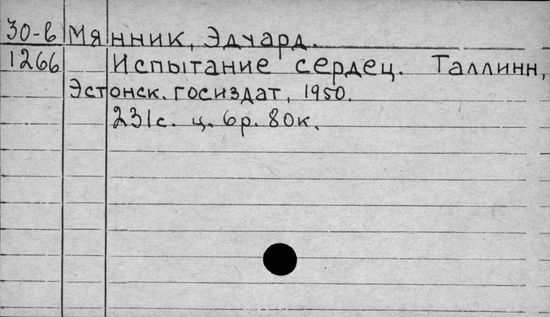 30-в Мянник, Эдуард.
1266 Испытание сердец. Таллинн,
Эстонск. госиздат, 1950.
231с. ц. 6р. 80к.